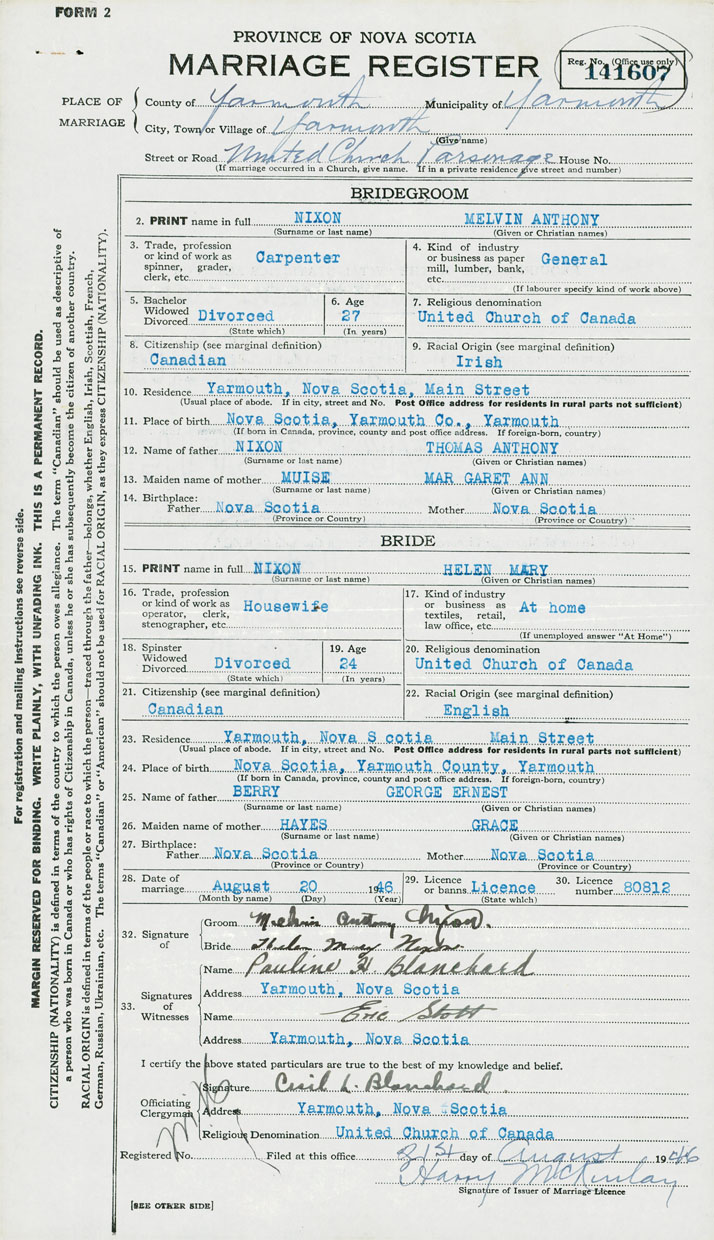 FORM 2
PROVINCE OF NOVA SCOTIA
MARRIAGE REGISTER
Reg. No. (Office use only)
141607
PLACE OF MARRIAGE
County of Yarmouth Municipality of Yarmouth
City, Town or Village of Yarmouth
(Give name)
Street or Road United Church Parsonage House No.
(If marriage occurred in a Church, give name. If in a private residence give street and number)
BRIDEGROOM
2. PRINT name in full NIXON MELVIN ANTHONY
(Surname or last name) (Given or Christian names)
3. Trade, profession or kind of work as spinner, grader, clerk, etc. Carpenter
4. Kind of industry or business as paper mill, lumber, bank, etc. General
(If labourer specify kind of work above)
5. Bachelor Widowed Divorced Divorced
(State which)
6. Age 27
(In years)
7. Religious denomination
United Church of Canada
8. Citizenship (see marginal definition)
Canadian
9. Racial Origin (see marginal definition)
Irish
10. Residence Yarmouth, Nova Scotia, Main Street
(Usual place of abode. If in city, street and No. Post Office address for residents in rural parts not sufficient)
11. Place of birth Nova Scotia, Yarmouth Co., Yarmouth
(If born in Canada, province, county and post office address. If foreign-born, country)
12. Name of father NIXON THOMAS ANTHONY
(Surname or last name) (Given or Christian names)
13. Maiden name of mother MUISE MAR GARET ANN
(Surname or last name) (Given or Christian names)
14. Birthplace:
Father Nova Scotia Mother Nova Scotia
(Province or Country) (Province or Country)
BRIDE
15. PRINT name in full NIXON HELEN MARY
(Surname or last name) (Given or Christian names)
16. Trade, profession or kind of work as operator, clerk, stenographer, etc. Housewife
17. Kind of industry or business as textiles, retail, law office, etc. At home
(If unemployed answer "At Home")
18. Spinster Widowed Divorced Divorced
(State which)
19. Age 24
(In years)
20. Religious denomination
United Church of Canada
21. Citizenship (see marginal definition)
Canadian
22. Racial Origin (see marginal definition)
English
23. Residence Yarmouth, Nova S cotia Main Street
(Usual place of abode. If in city, street and No. Post Office address for residents in rural parts not sufficient)
24. Place of birth Nova Scotia, Yarmouth County, Yarmouth
(If born in Canada, province, county and post office address. If foreign-born, country)
25. Name of father BERRY GEORGE ERNEST
(Surname or last name) (Given or Christian names)
26. Maiden name of mother HAYES GRACE
(Surname or last name) (Given or Christian names)
27. Birthplace:
Father Nova Scotia Mother Nova Scotia
(Province or Country) (Province or Country)
28. Date of marriage August 20 1946
(Month by name) (Day) (Year)
29. Licence or banns Licence
(State which)
30. Licence number 80812
32. Signature of
Groom Melvin Anthony Nixon.
Bride Helen Mary Nixon.
33. Signatures of Witnesses
Name Pauline H. Blanchard
Address Yarmouth, Nova Scotia
Name Eric Stott
Address Yarmouth, Nova Scotia
I certify the above stated particulars are true to the best of my knowledge and belief.
Officiating Clergyman
Signature Cecil L. Blanchard.
Address Yarmouth, Nova Scotia
Religious Denomination United Church of Canada
Registered No. Filed at this office 21st day of August 1946
Harry McKinlay
Signature of Issuer of Marriage Licence
[SEE OTHER SIDE]
For registration and mailing instructions see reverse side.
MARGIN RESERVED FOR BINDING. WRITE PLAINLY, WITH UNFADING INK. THIS IS A PERMANENT RECORD.
CITIZENSHIP (NATIONALITY) is defined in terms of the country to which the person owes allegiance. The term "Canadian" should be used as descriptive of
a person who was born in Canada or who has rights of Citizenship in Canada, unless he or she has subsequently become the citizen of another country.
RACIAL ORIGIN is defined in terms of the people or race to which the person—traced through the father—belongs, whether English, Irish, Scottish, French,
German, Russian, Ukrainian, etc. The terms "Canadian" or "American" should not be used for RACIAL ORIGIN, as they express CITIZENSHIP (NATIONALITY).